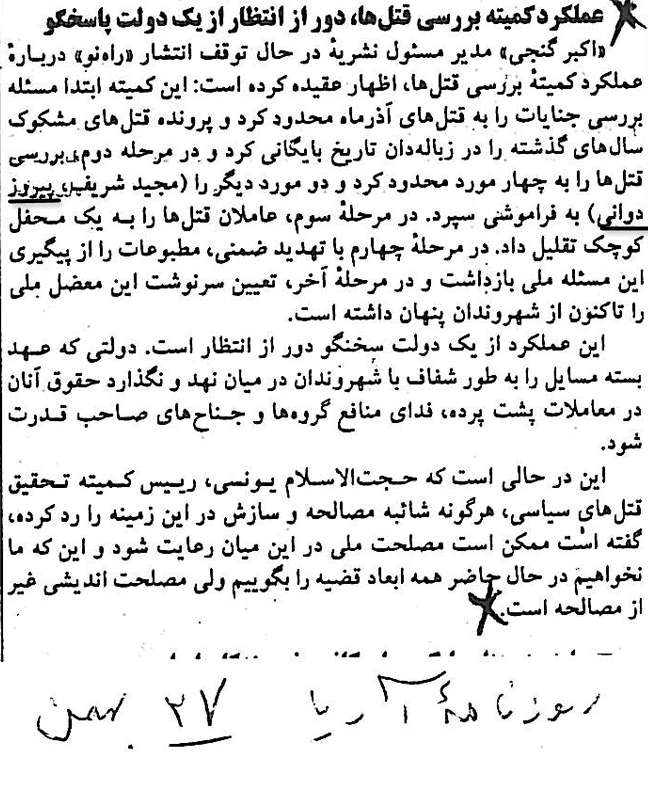 عملکرد کمیته بررسی قتل‌ها، دور از انتظار از یک دولت پاسخگو
«اکبر گنجی» مدیر مسئول نشریهٔ در حال توقف انتشار «راه‌نو» دربارهٔ
عملکرد کمیتهٔ بررسی قتل‌ها، اظهار عقیده کرده است: این کمیته ابتدا مسئله
بررسی جنایات را به قتل‌های آذرماه محدود کرد و پرونده قتل‌های مشکوک
سال‌های گذشته را در زباله‌دان تاریخ بایگانی کرد و در مرحله دوم، بررسی
قتل‌ها را به چهار مورد محدود کرد و دو مورد دیگر را (مجید شریف، پیروز
دوانی) به فراموشی سپرد. در مرحلهٔ سوم، عاملان قتل‌ها را به یک محفل
کوچک تقلیل داد. در مرحلهٔ چهارم با تهدید ضمنی، مطبوعات را از پیگیری
این مسئله ملی بازداشت و در مرحلهٔ آخر، تعیین سرنوشت این معضل ملی
را تاکنون از شهروندان پنهان داشته است.
این عملکرد از یک دولت سخنگو دور از انتظار است. دولتی که عهد
بسته مسایل را به طور شفاف با شهروندان در میان نهد و نگذارد حقوق آنان
در معاملات پشت پرده، فدای منافع گروه‌ها و جناح‌های صاحب قدرت
شود.
این در حالی است که حجت‌الاسلام یونسی، رییس کمیته تحقیق
قتل‌های سیاسی، هرگونه شائبه مصالحه و سازش در این زمینه را رد کرده،
گفته است ممکن است مصلحت ملی در این میان رعایت شود و این که ما
نخواهیم در حال حاضر همه ابعاد قضیه را بگوییم ولی مصلحت اندیشی غیر
از مصالحه است.
روزنامهٔ آریا ۲۷ بهمن